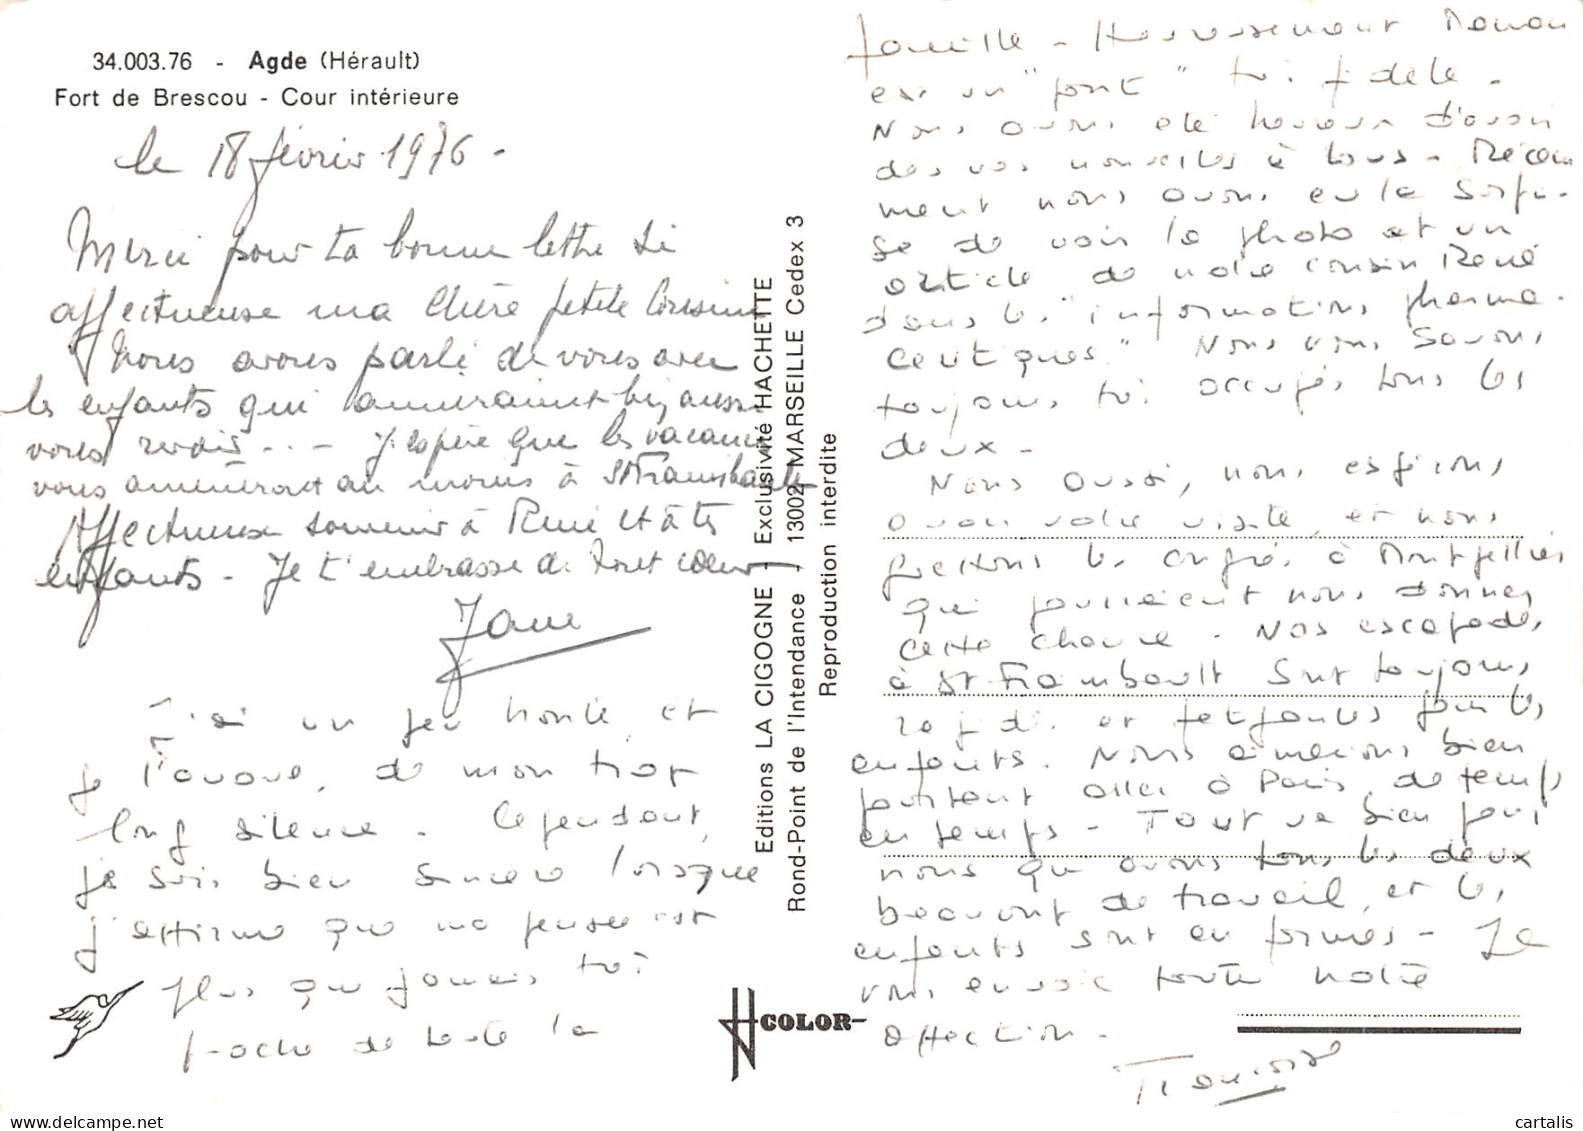 34.003.76 - Agde (Hérault)
Fort de Brescou - Cour intérieure
le 18 février 1976 -
Merci pour ta bonne lettre si
affectueuse ma chère petite Cousine
Nous avons parlé de vous avec
les enfants qui aimeraient bien aussi
vous revoir... - J'espère que les vacances
vous amèneront au moins à St Frambault
Affectueux souvenir à René et à tes
enfants - Je t'embrasse de tout cœur
Jane
J'ai un peu honte et
je l'avoue, de mon trop
long silence. Cependant,
je suis bien sincère lorsque
j'affirme que ma pensée est
plus que jamais très
proche de toute la
famille - Heureusement Maman
est un "pont" très fidèle -
Nous avons été heureux d'avoir
des vos nouvelles à tous - Récem
ment nous avons eu la surpri-
se de voir la photo et un
article de notre cousin René
dans les "informations pharma-
ceutiques" Nous vous savons
toujours très occupés tous les
deux -
Nous aussi, nous espérons
avoir votre visite, et nous
guettons les congrès à Montpellier
qui pourraient nous donner
cette chance. Nos escapades
à St Frambault sont toujours
rapides et fatigantes pour les
enfants. Nous aimerions bien
pourtant aller à Paris, de temps
en temps - Tout va bien pour
nous qui avons tous les deux
beaucoup de travail, et les
enfants sont en formes - Je
vous envoie toute notre
affection -
Françoise
Editions LA CIGOGNE - Exclusivité HACHETTE
Rond-Point de l'Intendance / 13002 MARSEILLE Cedex 3
Reproduction interdite
COLOR
cartalis